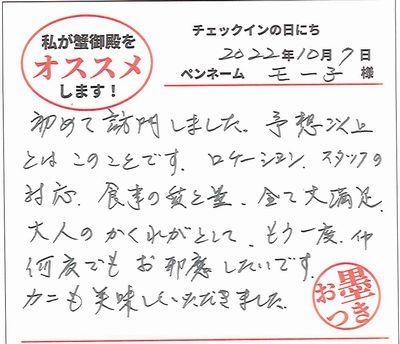 私が蟹御殿を
オススメ
します！
チェックインの日にち
2022年10月9日
ペンネーム モー子 様
初めて訪門しました。予想以上
とはこのことです。ロケーション、スタッフの
対応、食事の質と量、全て大満足。
大人のかくれがとして、もう一度、
何度でもお邪魔したいです。
カニも美味しくいただきました。
お墨つき